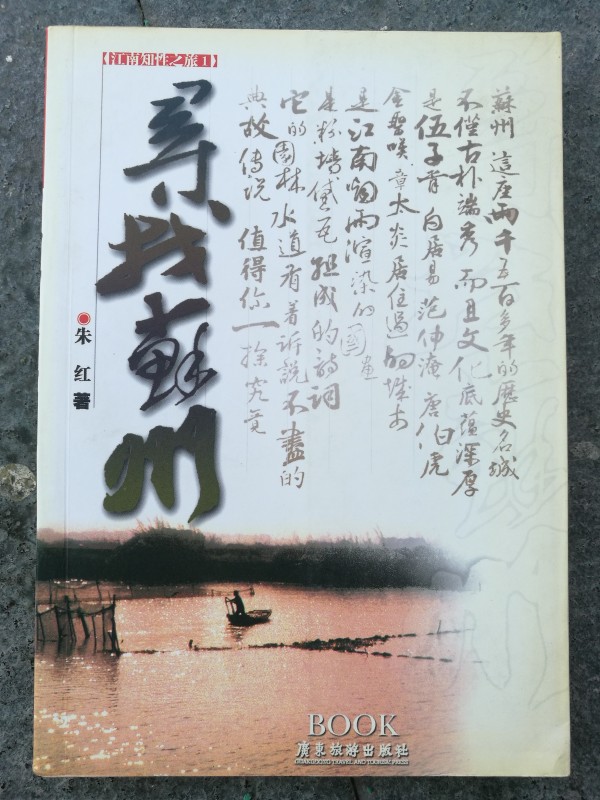 【江南知性之旅1】
尋找蘇州
◉朱红 著
蘇州 這座兩千五百多年的歷史名城
不僅古朴端秀 而且文化底蕴深厚
是伍子胥 白居易 范仲淹 唐伯虎
金聖嘆 章太炎居住過的城市
是江南烟雨渲染的國畫
是粉墙黛瓦組成的詩词
它的園林水道有着訴說不盡的
典故傳说 值得你一探究竟
BOOK
廣東旅游出版社
GUANGDONG TRAVEL AND TOURISM PRESS